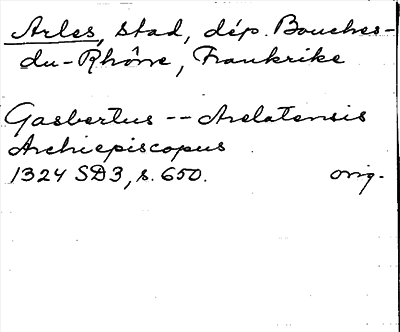 Arles, stad, dép. Bouches-
du-Rhône, Frankrike
Gasbertus -- Arelatensis
Archiepiscopus
1324 SD3, s. 650. orig.